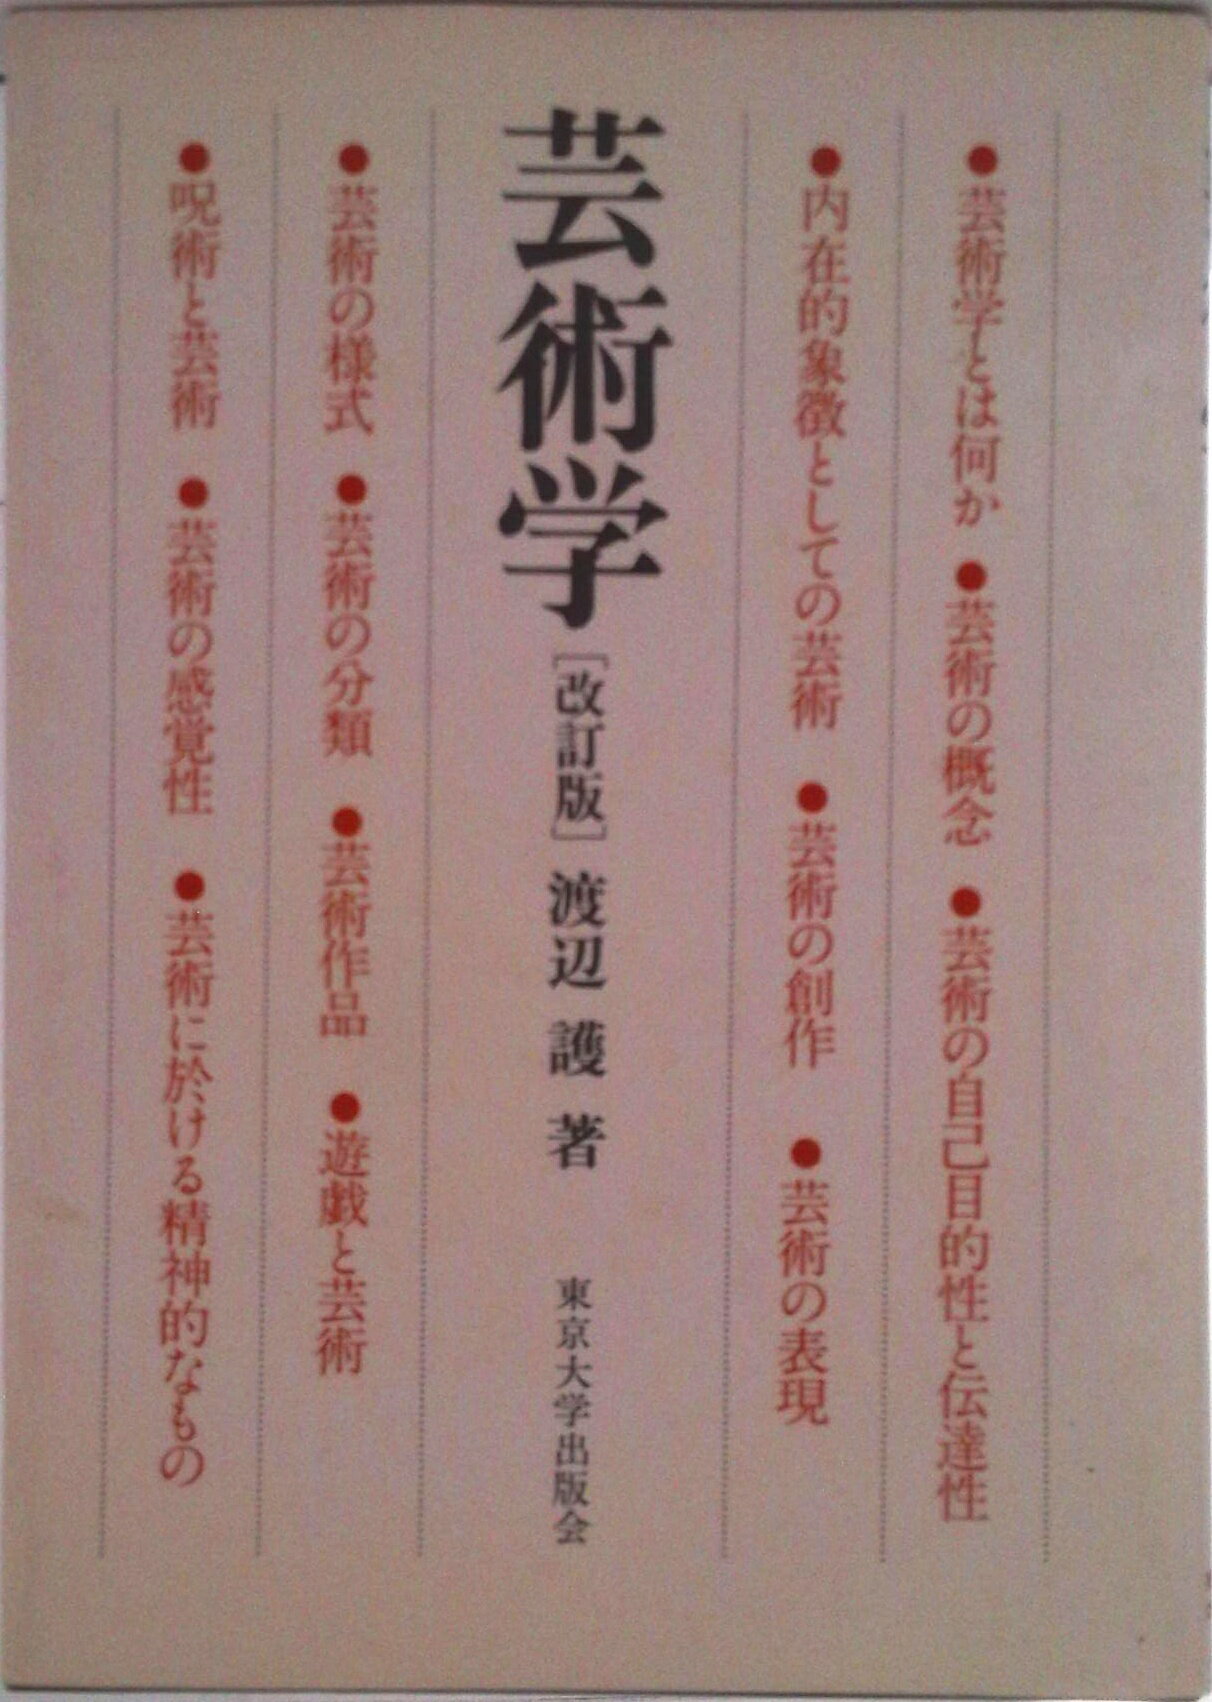 ●芸術学とは何か ●芸術の概念 ●芸術の自己目的性と伝達性
●内在的象徴としての芸術 ●芸術の創作 ●芸術の表現
芸術学[改訂版] 渡辺 護 著 東京大学出版会
●芸術の様式 ●芸術の分類 ●芸術作品 ●遊戯と芸術
●呪術と芸術 ●芸術の感覚性 ●芸術に於ける精神的なもの